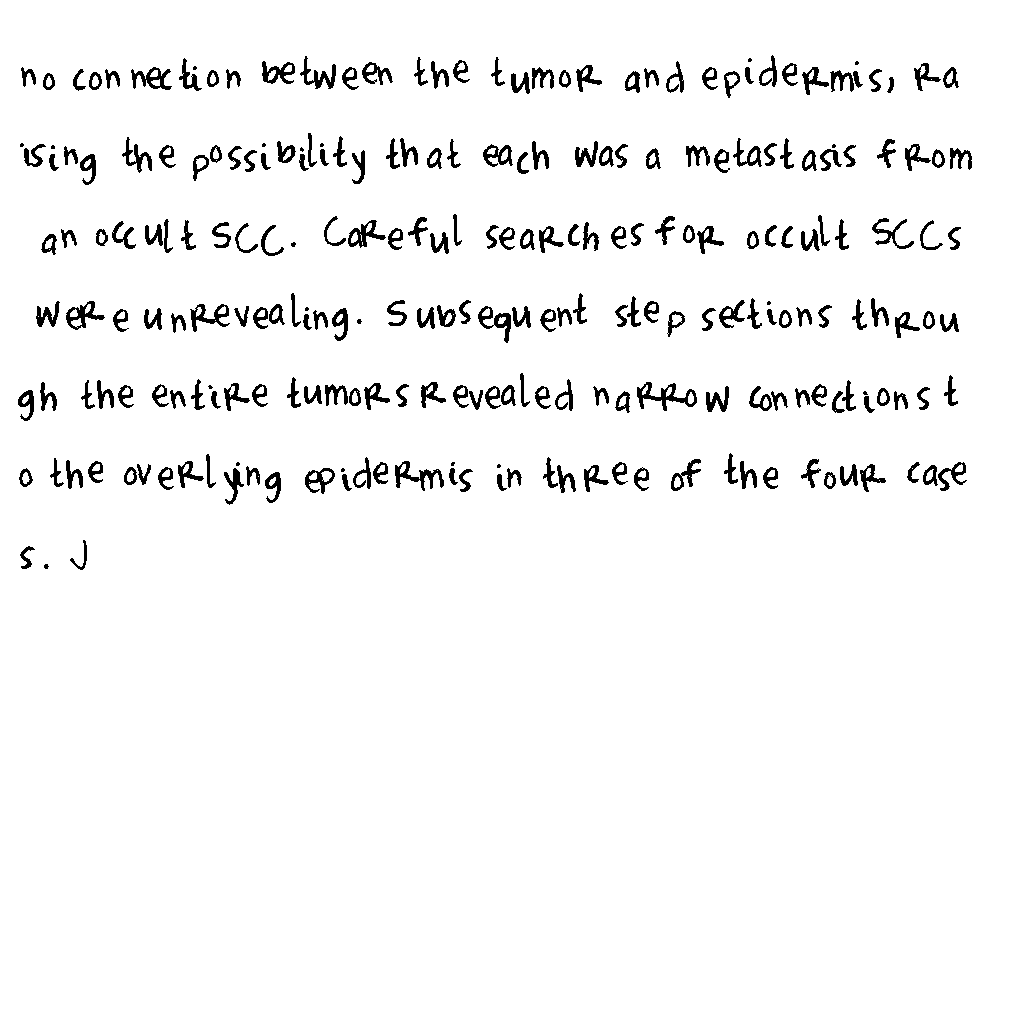 no connection between the tumor and epidermis, ra
ising the possibility that each was a metastasis from
an occult SCC. Careful searches for occult SCCs
were unrevealing. Subsequent step sections throu
gh the entire tumors revealed narrow connections t
o the overlying epidermis in three of the four case
s. J